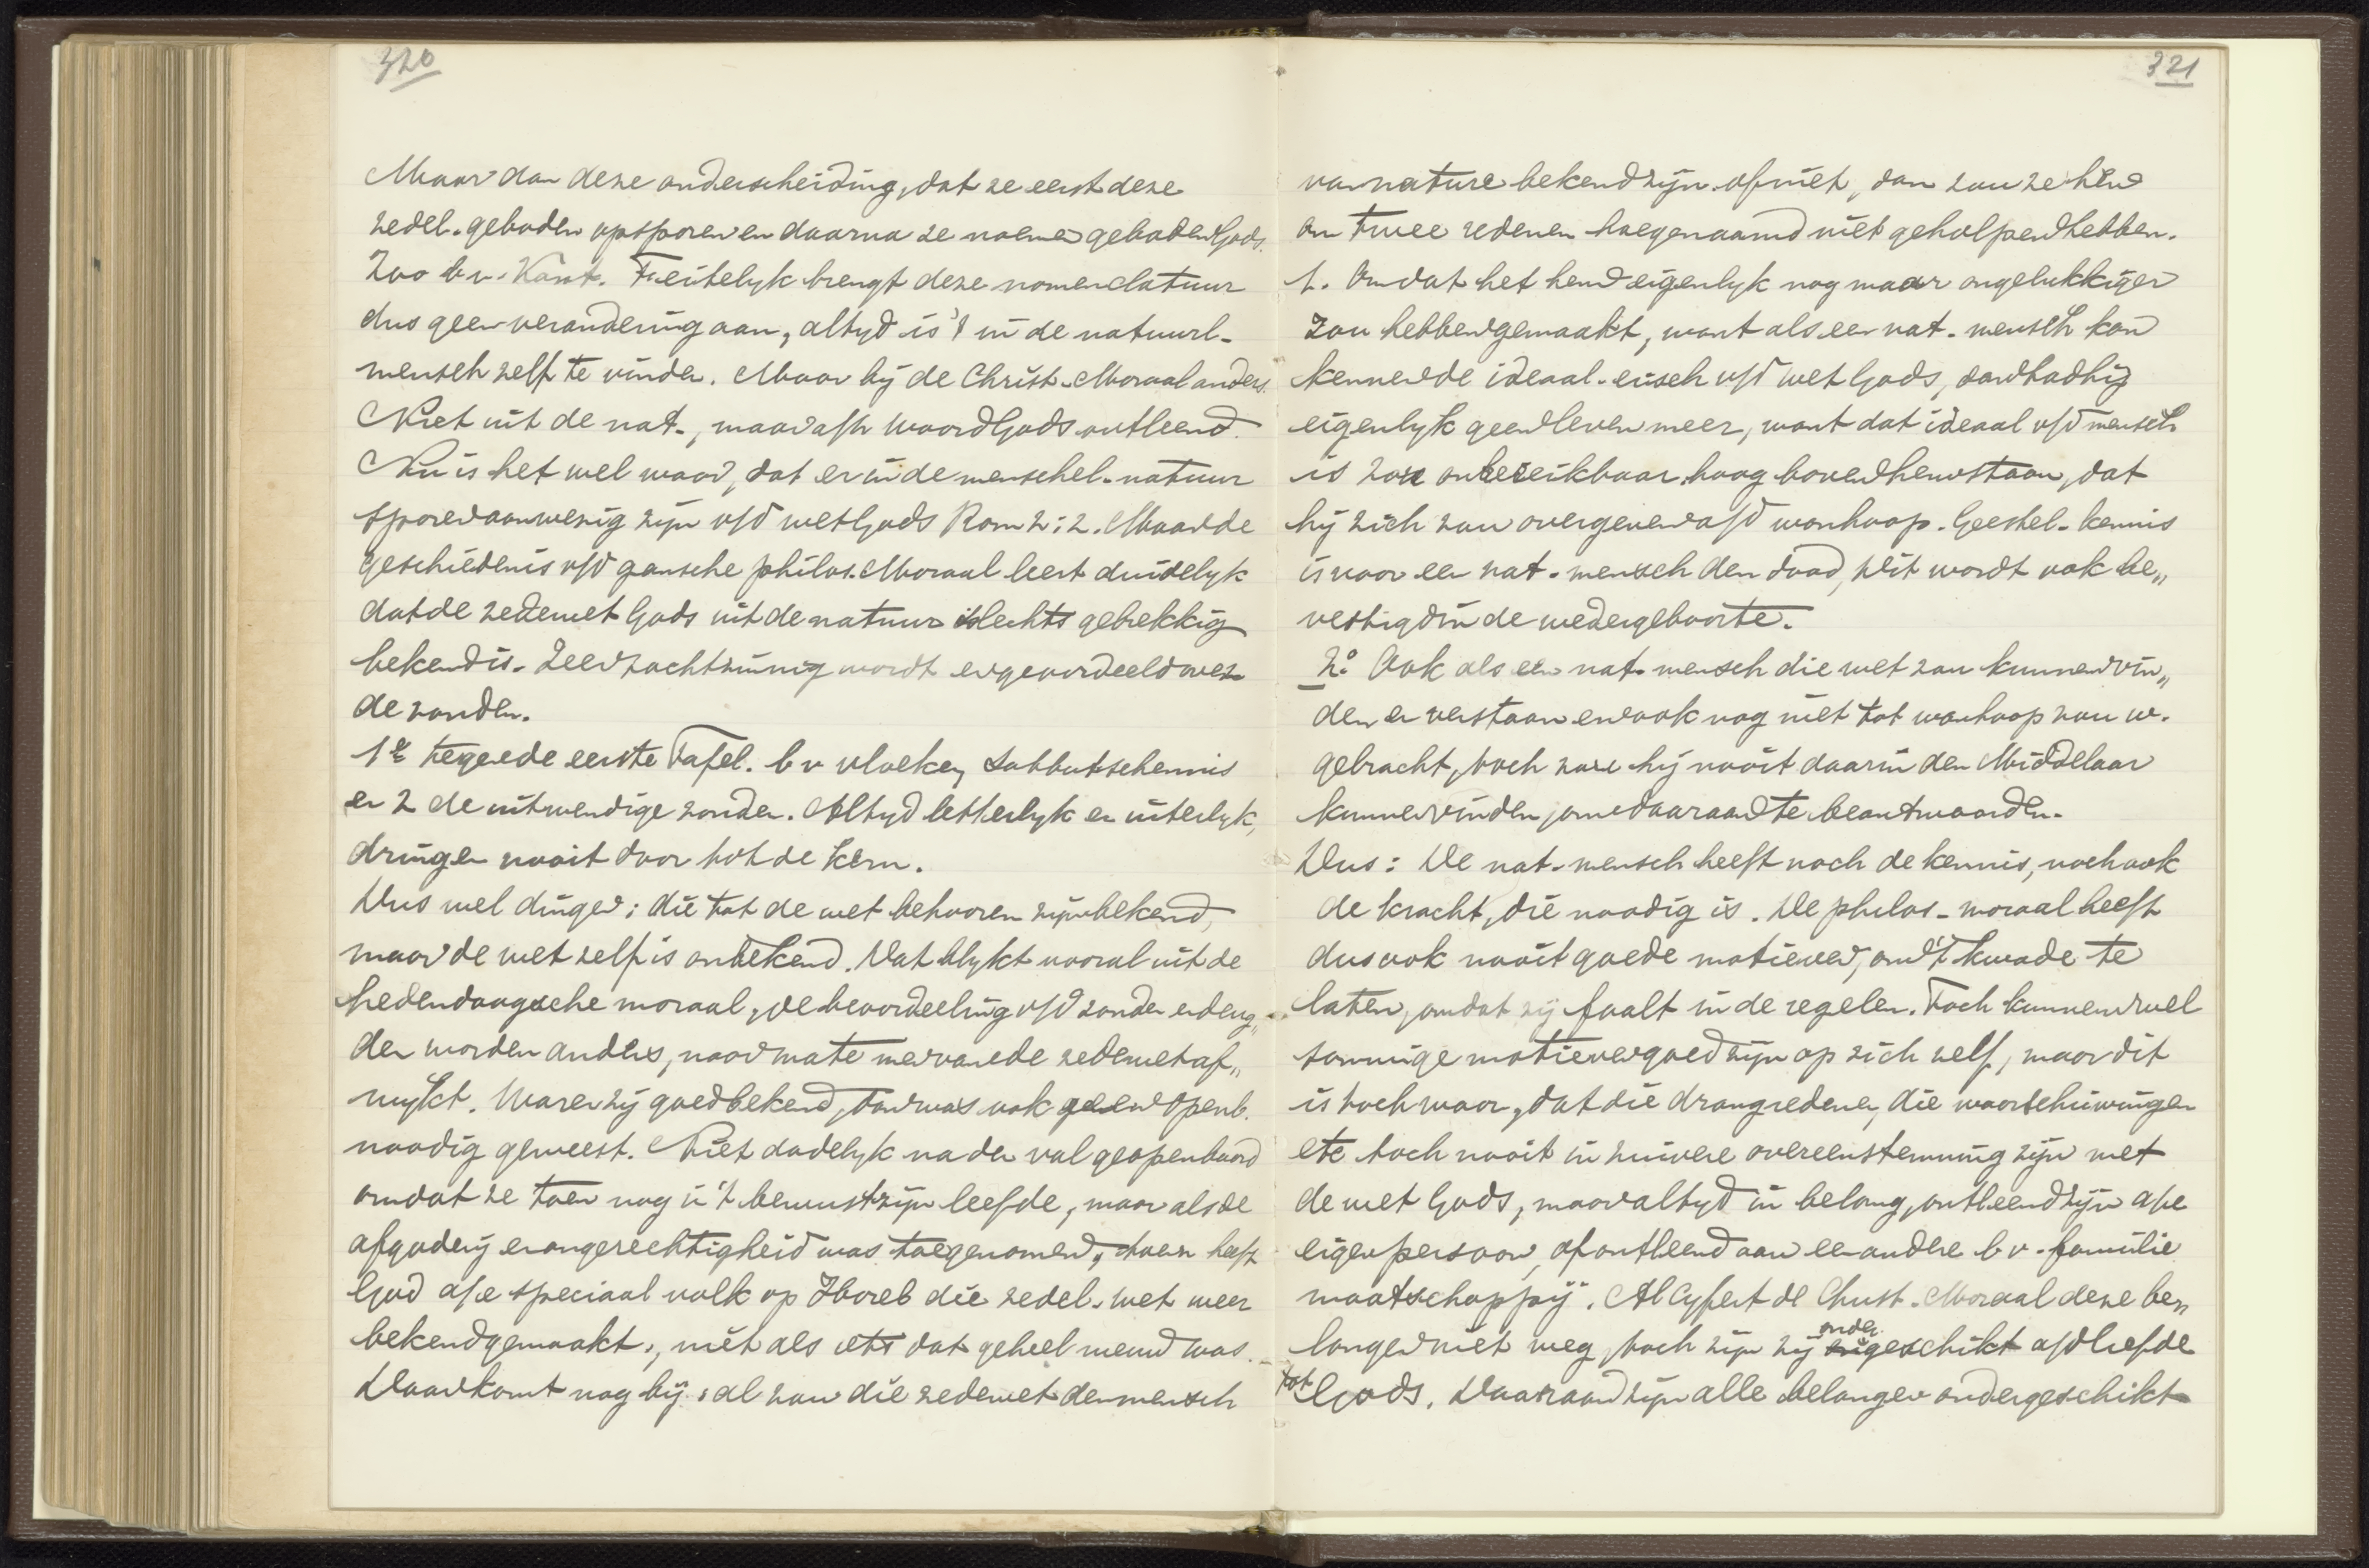 320
Maar dan deze onderscheiding, dat ze eerst deze
zedel. geboden opsporen en daarna ze noemen geboden Gods.
Zoo b v. Kant. Feitelyk brengt deze nomenclatuur
dus geen verandering aan, altyd is 't in de natuurl.
mensch zelf te vinden. Maar bij de Christ. Moraal anders.
Niet uit de nat., maar a/h Woord Gods ontleend.
Nu is het wel waar, dat er in de menschel. natuur
sporen aanwezig zijn v/d wet Gods Rom 2:2. Maar de
geschiedenis v/d gansche philos. Moraal leert duidelyk
dat de zedewet Gods uit de natuur slechts gebrekkig
bekend is. Zeer zachtzinnig wordt er geoordeeld over
de zonden.
1e tegen de eerste Tafel. b v vloeken, Sabbatschennis
en 2 de uitwendige zonden. Altyd letterlyk en uiterlyk,
dringen nooit door tot de kern.
Dus wel dingen; die tot de wet behooren zijn bekend,
maar de wet zelf is onbekend. Dat blykt vooral uit de
hedendaagsche moraal, de beoordeeling v/d zonden en deug„
den worden anders, naar mate men van de zedewet af„
wykt. Waren zij goed bekend, dan was ook geen Openb.
noodig geweest. Niet dadelyk na den val geopenbaard
omdat ze toen nog in 't bewustzijn leefde, maar als de
afgodery en ongerechtigheid was toegenomen, toen heeft
God a/e speciaal volk op Horeb die zedel. wet weer
bekend gemaakt, niet als iets dat geheel nieuw was.
Daar komt nog bij: al zou die zedewet den mensch
321
van nature bekend zijn of niet, dan zou ze hen
om twee redenen hoegenaamd niet geholpen hebben.
1. Omdat het hen eigenlyk nog maar ongelukkiger
zou hebben gemaakt, want als een nat. mensch kon
kennen de ideaal-eisch v/d wet Gods, dan had hij
eigenlyk geen leven meer, want dat ideaal v/d mensch
is zou onbereikbaar hoog boven hem staan, dat
hij zich zou overgeven a/d wanhoop. Geestel. kennis
is voor een nat. mensch den dood, dit wordt ook be„
vestigd in de wedergeboorte.
2o Ook als een nat. mensch die wet zou kunnen vin„
den en verstaan en ook nog niet tot wanhoop zou w.
gebracht, toch zou hij nooit daarin den Middelaar
kunnen vinden, om daaraan te beantwoorden.
Dus: De nat. mensch heeft noch de kennis, noch ook
de kracht, die noodig is. De philos. moraal heeft
dus ook nooit goede motieven, om 't kwade te
laten, omdat zij faalt in de regelen. Toch kunnen wel
sommige motieven goed zijn op zich zelf, maar dit
is toch waar, dat die drangredenen, die waarschuwingen
etc toch nooit in zuivere overeenstemming zijn met
de wet Gods, maar altyd in belang, ontleend zijn a/e
eigen persoon, of ontleend aan een andere b v. familie
maatschappij. Al cyfert de Christ. Moraal deze be„
langen niet weg, toch zijn zij ondergeschikt a/d liefde
tot Gods. Daaraan zijn alle belangen ondergeschikt